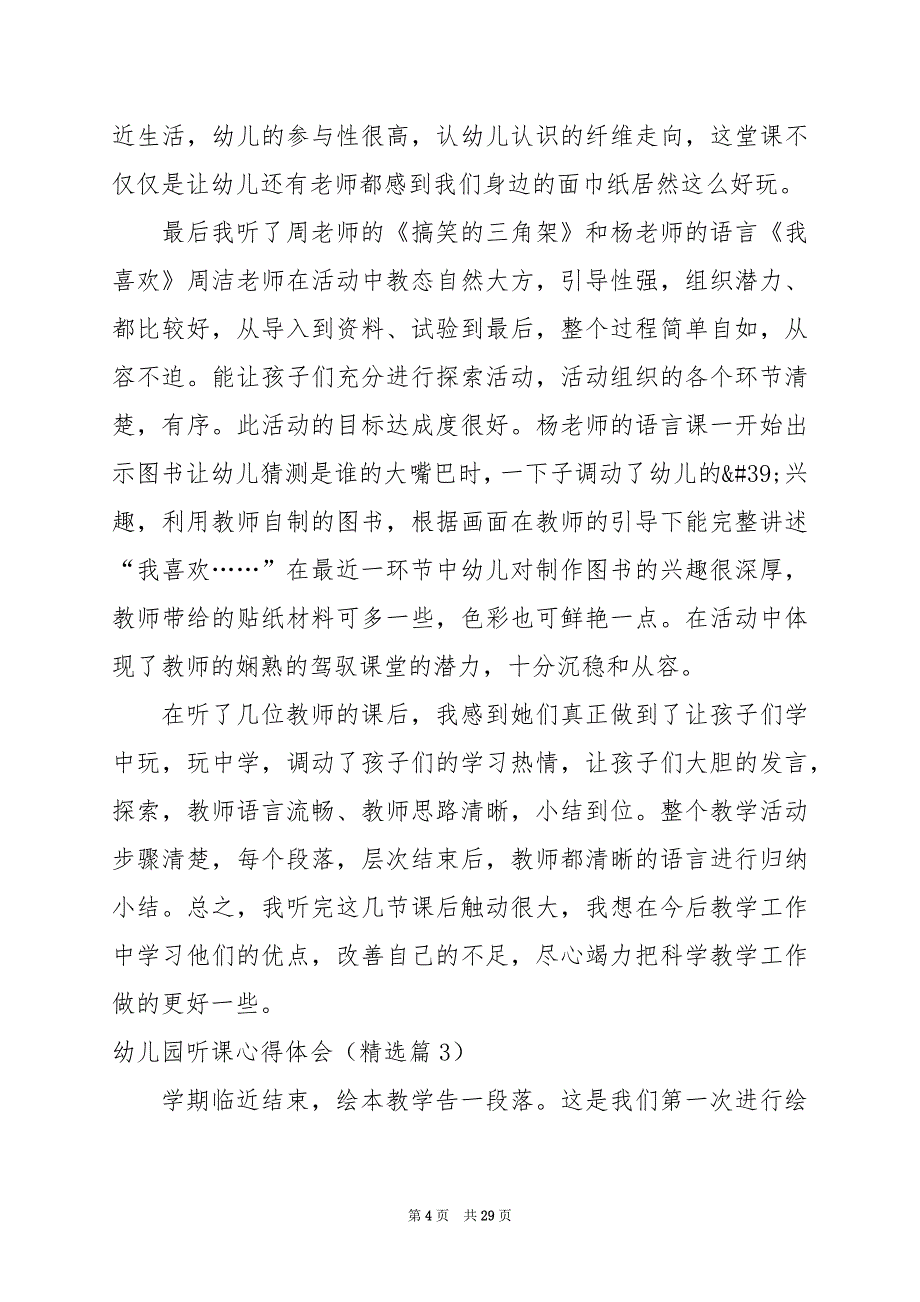 近生活，幼儿的参与性很高，认幼儿认识的纤维走向，这堂课不
仅仅是让幼儿还有老师都感到我们身边的面巾纸居然这么好玩。
最后我听了周老师的《搞笑的三角架》和杨老师的语言《我
喜欢》周洁老师在活动中教态自然大方，引导性强，组织潜力、
都比较好，从导入到资料、试验到最后，整个过程简单自如，从
容不迫。能让孩子们充分进行探索活动，活动组织的各个环节清
楚，有序。此活动的目标达成度很好。杨老师的语言课一开始出
示图书让幼儿猜测是谁的大嘴巴时，一下子调动了幼儿的&#39;兴
趣，利用教师自制的图书，根据画面在教师的引导下能完整讲述
“我喜欢……”在最近一环节中幼儿对制作图书的兴趣很深厚，
教师带给的贴纸材料可多一些，色彩也可鲜艳一点。在活动中体
现了教师的娴熟的驾驭课堂的潜力，十分沉稳和从容。
在听了几位教师的课后，我感到她们真正做到了让孩子们学
中玩，玩中学，调动了孩子们的学习热情，让孩子们大胆的发言，
探索，教师语言流畅、教师思路清晰，小结到位。整个教学活动
步骤清楚，每个段落，层次结束后，教师都清晰的语言进行归纳
小结。总之，我听完这几节课后触动很大，我想在今后教学工作
中学习他们的优点，改善自己的不足，尽心竭力把科学教学工作
做的更好一些。
幼儿园听课心得体会（精选篇3）
学期临近结束，绘本教学告一段落。这是我们第一次进行绘
第 4 页 共 29 页